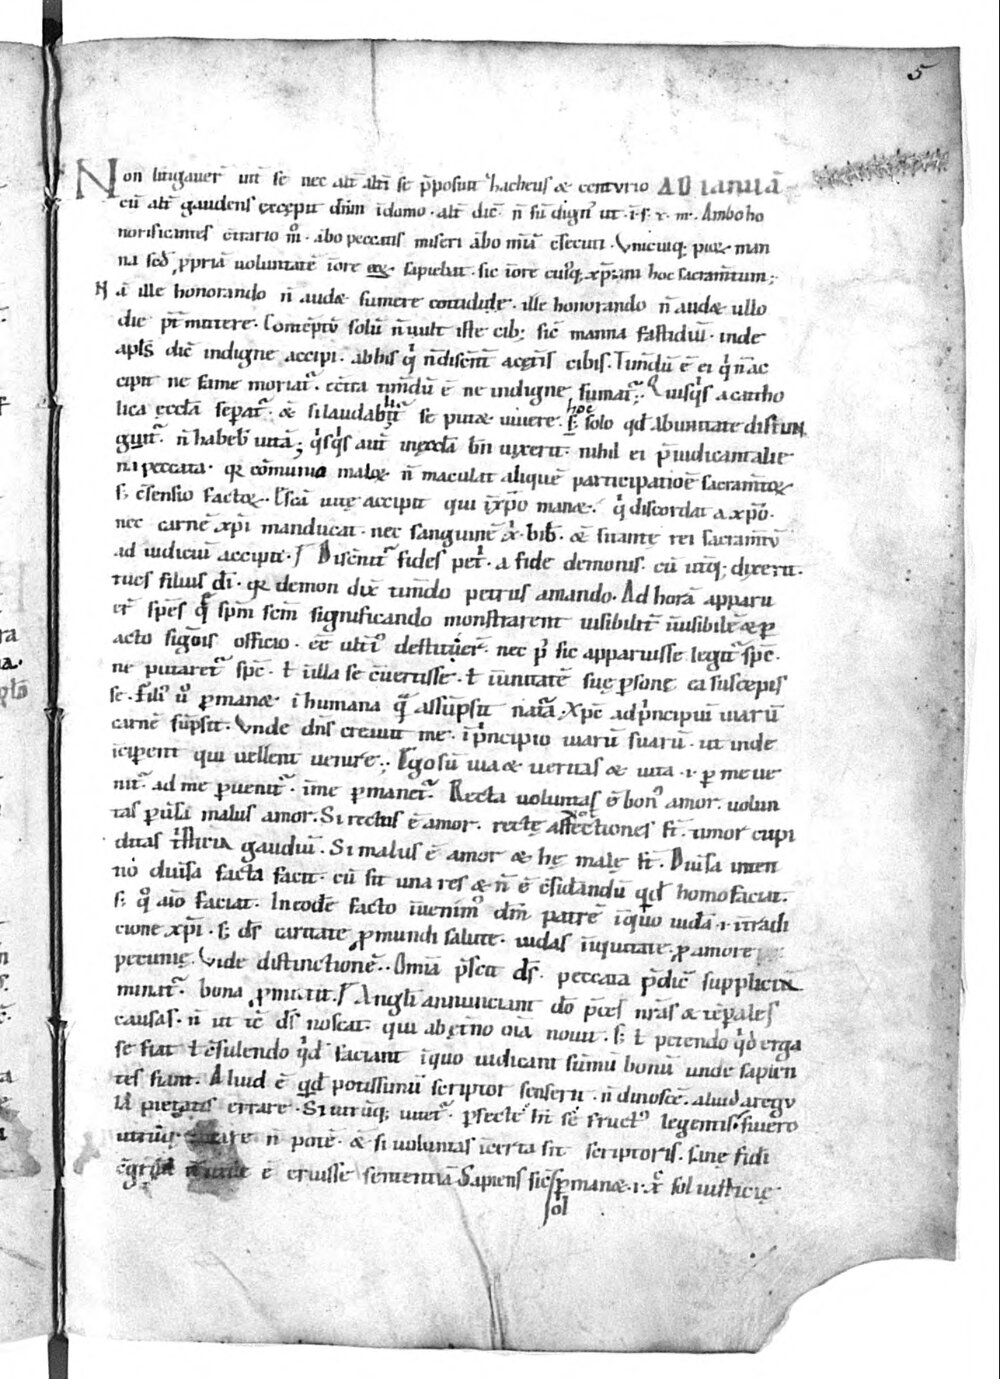 5
Non litigauer̄ int̄ se nec alt̄ alt̄i se p̄posuit Zacheus & centurio AD IANUĀ
cū alt̄ gaudens excępit dn̄m ī domo · alt̄ dic̄ · n̄ sū dign' ut · ī · s · t · m · Ambo ho
norificantes c̄trario m° · ābo peccatis miseri ābo m̄iā c̄secuti · Unicuiq; pua& man
na sed' ꝓpriā uoluntatē ī ore sapiebat · sic ī ore cui'q; xp̄iani hoc sacram̄tum ;
Nā ille honorando n̄ aud& sumere cottidie · ille honorando n̄ aud& ullo
die p̄t mittere · Cōtēptū solū n̄ uult iste cib; sic̄ manna fastidiū · inde
apl̄s dic̄ indigne accipi · ab his q' n̄ discern̄t a cet̄is cibis · Timēdū ē ei q' n̄ ac
cipit ne fame moriat̄ · ec̄tra timēdū ē ne indigne sumat̄ ; Quisq's a catho
lica ęcclā separat' · & si laudabilit̄ se put& uiuere · hoc s; solo qd̄ ab unitate distun
guit̄ · n̄ habeb' uitā ; q'sq's aut̄ in ęcclā bn̄ uixerit · nihil ei p̄iudicant alie
na peccata · qꝛ cōmunio maloꝝ n̄ maculat aliquē participatiōe sacram̄toꝝ
s; c̄sensio factoꝝ · Escā uitę accipit qui ī xp̄o man& · q' discordat a xp̄o ·
nec carnē xp̄i manducat · nec sanguinē ei' bib' · & si tantę rei sacram̄tū
ad iudiciū accipit · Discernit̄ fides pet' · a fide demonis · cū ut'q; dixerit ·
tu es filius dī · qꝛ demon dix̄ timēdo petrus amando · Ad horā apparu
er̄ spēs q̄ spm̄ scm̄ significando monstrarent uisibilit̄ īuisibilē & p
acto signis officio · eē ult'i' destituer̄ · nec p' sic apparuisse legit̄ spē ·
ne putaret̄ spē · l̄ in illa se c̄uertisse · l̄ ī unitatē suę psonę ea suscepis
se · Fili' u° pman& · ī humana q̄ assūpsit natā · Xpc̄ ad p'ncipiū uiarū
carnē sūpsit · Unde dn̄s creauit me · ī p'ncipio uiarū suarū · ut inde
īciperent qui uellent uenire ; Ego sū uia & ueritas & uita · i · p me ue
nit̄ · ad me puenit̄ · ī me pman&̄ · Recta uoluntas ē bon' amor · uolun
tas puīsa malus amor · Si rectus ē amor · rectę affectiones st̄ · timor cupi
ditas tristicia gaudiū · Si malus ē amor & hę malę st̄ · Diuīsa inten
tio diuīsa facta facit · cū sit una res & n̄ ē c̄siderandū qd̄ homo faciat ·
s; q° aīo faciat · In eodē facto īuenim' dm̄ patrē ī quo iudā · i · ī tradi
cione xp̄i · s; ds̄ caritate ꝓ mundi salute · iudas īiquitate ꝓ amore
pecunię · Vide distinctionē · Omīa p̄scit ds̄ · peccata p̄dic̄ supplicia
minat̄ · bona ꝓmittit · Angl̄i annunciant dō p̄ces nr̄as & tēpales
causas · n̄ ut ic̄ ds̄ noscat · qui ab ęt̄no oīa nouit · s; l̄ petendo q'd erga
se fiat l̄ c̄sulendo q'd faciant ī quo iudicant sūmū bonū unde sapien
tes fiant · Aliud ē qd̄ potissimū scriptor senserit · n̄ dinoscē · aliud a regu
la pietatis errare · Si utrūq; uitet̄ · pfecte h̄t se fruct' legentis · si uero
utrūq; uitare n̄ potē · & si uoluntas īcerta sit scriptoris · sanę fidi
c̄gruā n̄ inutile ē eruisse sententiā Sapiens sic̄ sol pman& · i · x̄ sol iusticię